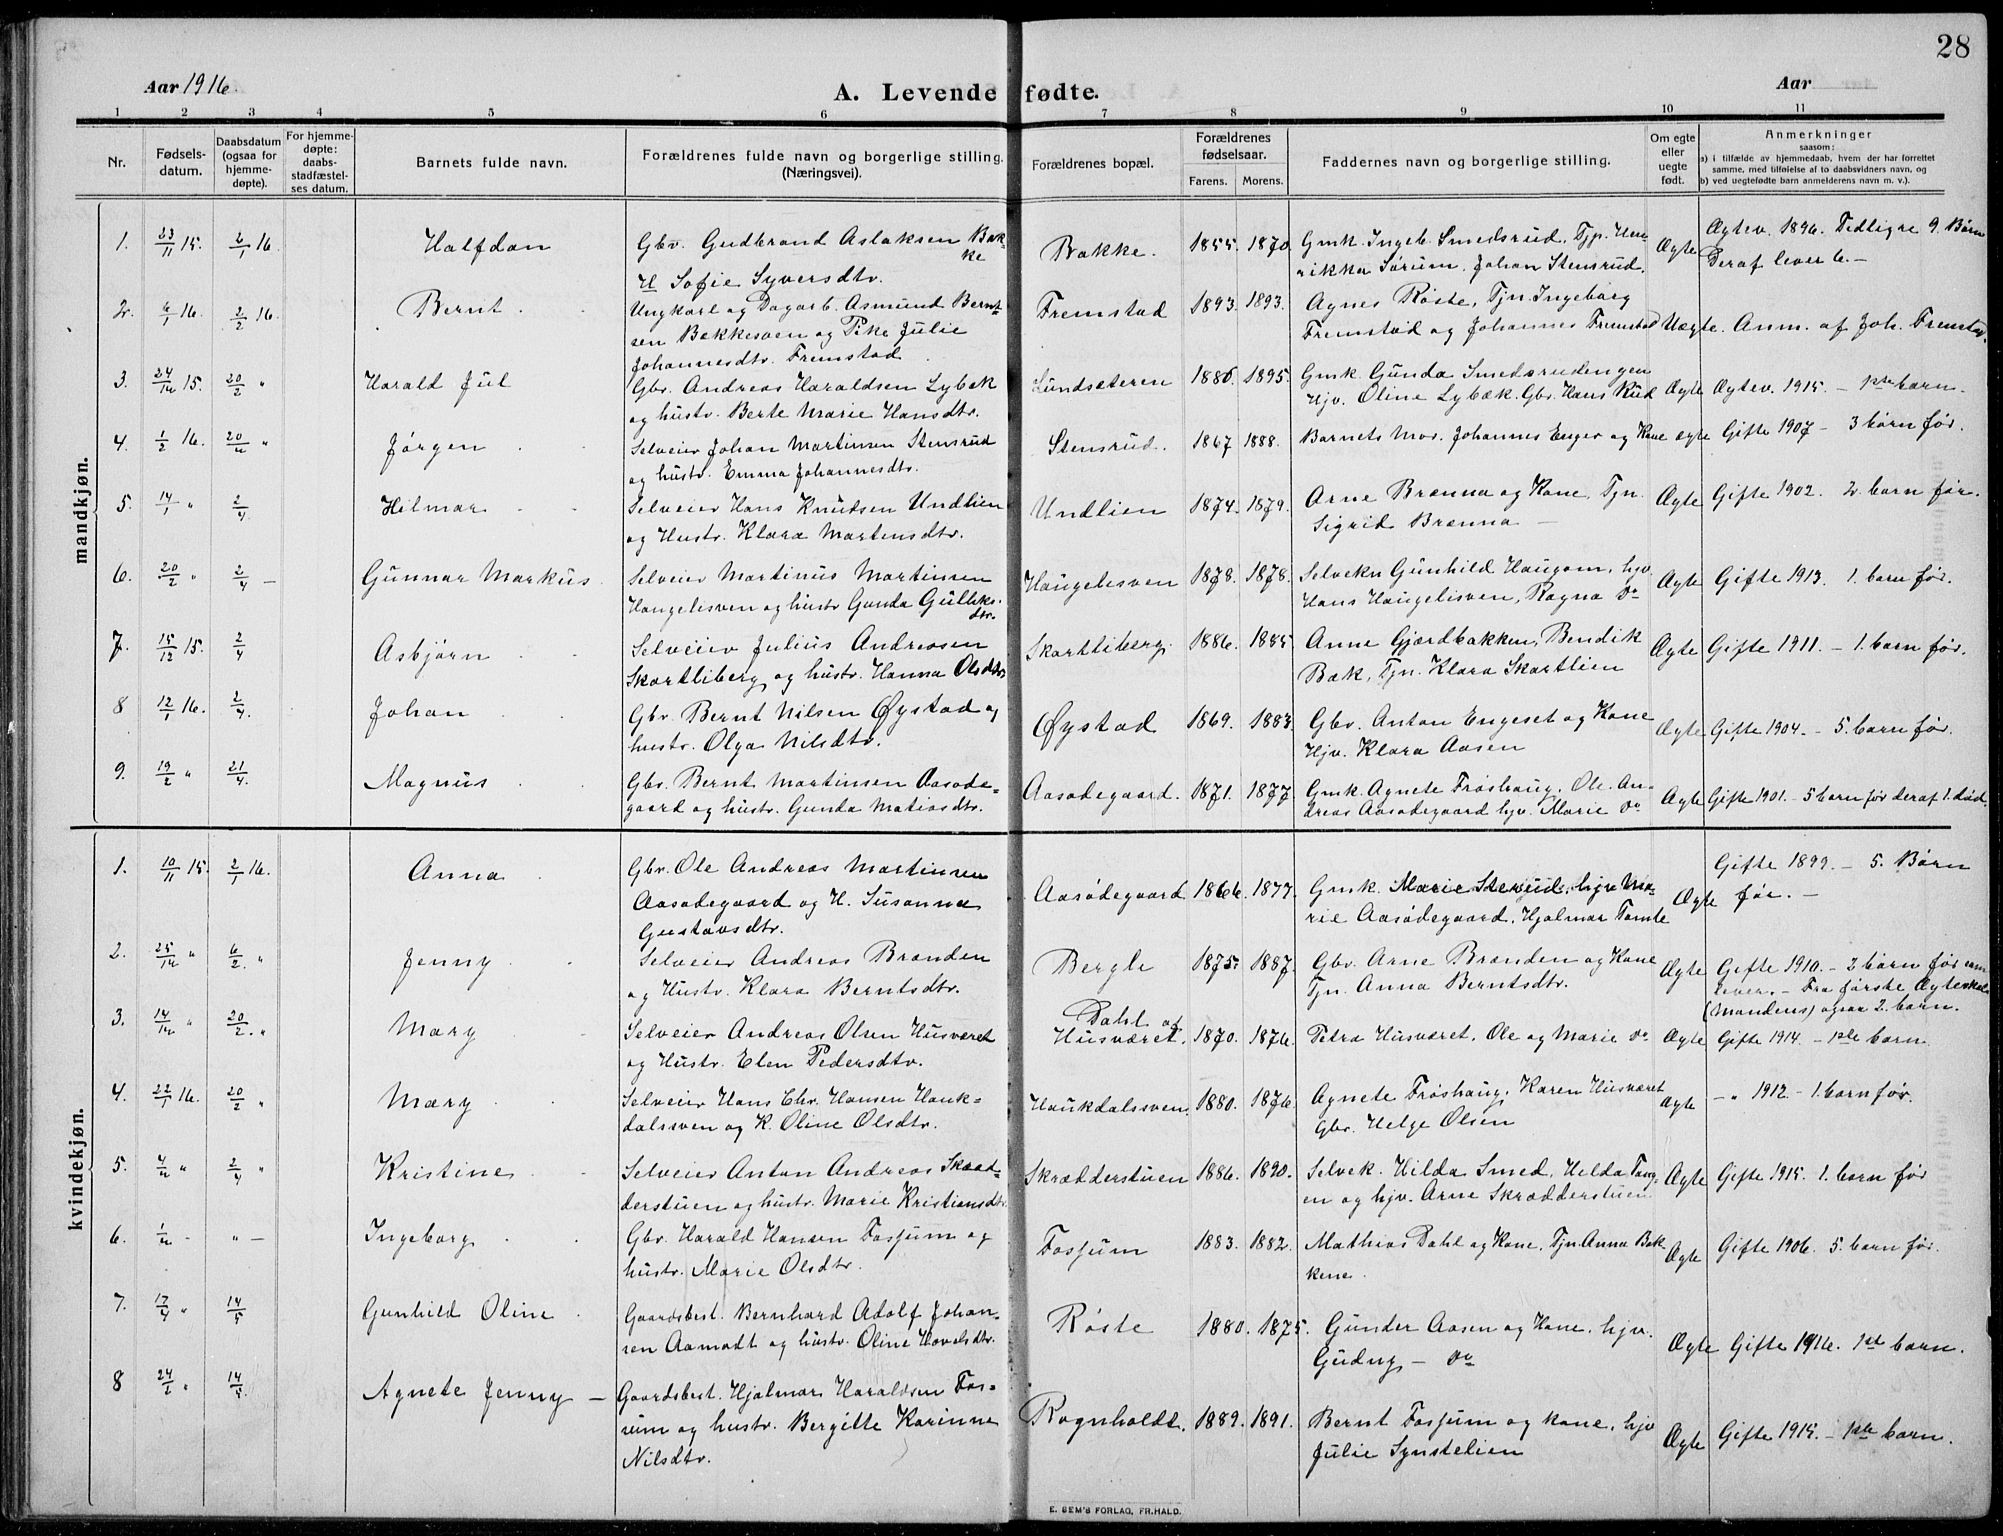 28
Aar 1916
A. Levendefødte.
Aar
1 2 3 4 5 6 7 8 9 10 11
Nr.
Fødsels-
datum.
Daabsdatum
(ogsaa for
hjemme-
døpte).
For hjemme-
døpte:
daabs-
stadfæstel-
ses datum.
Barnets fulde navn.
Forældrenes fulde navn og borgerlige stilling.
(Næringsvei).
Forældrenes bopæl.
Forældrenes
fødselsaar.
Farens. Morens.
Faddernes navn og borgerlige stilling.
Om egte
eller
uegte
født.
Anmerkninger
saasom:
a) i tilfælde av hjemmedaab, hvem der har forrettet
samme, med tilføielse af to daabsvidners navn og
b) ved uegtefødte barn anmelderens navn m. v.).
mandkjøn.
1. 23/11 15. 2/1 16. Halfdan Gbr. Gudbrand Aslaksen Bak-
ke
H Sofie Syversdtr.
Bakke. 1855. 1870. Gmk. Ingeb. Smedsrud, Tjp. Hen-
rikka Sørum, Johan Stensrud.
Ægte Ægtev. 1896. Tidligre 9 Børn
Deraf lever 6.-
2. 6/1 16. 2/2 16. Bernt Ungkarl og Dagarb. Asmund Bernt-
sen Bakkesven og Pike Julie
Johannesdtr. Fremstad
Fremstad 1893. 1893. Agnes Røste, Tjn. Ingeborg
Fremstad og Johannes Fremstad
Uægte. Anm. af Joh. Fremstad.
3. 24/12 15. 20/2 " Harald Jul Gbr. Andreas Haraldsen Lybæk
og hustr. Berte Marie Hansdtr.
Lundsæteren 1886 1895. Gmk. Gunda Smedsrudengen
Hjv. Oline Lybæk. Gbr. Hans Rud
Ægte Ægtev. 1915. - 1ste barn.
4. 1/2 16. 20/2 " Jørgen Selveier Johan Martinsen Stensrud
og hustr. Emma Johannesdtr.
Stensrud. 1867 1888. Barnets Mor. Johannes Enger og Kone ægte Gifte 1907 - 3 børn før.
5. 14/1 " 2/4 Hilmar Selveier Hans Knudsen Undlien
og Hustr. Klara Martensdtr.
Undlien 1874. 1879. Arne Brænna og Kone, Tjn.
Sigrid Brænna -
Ægte Gifte 1902. 2 barn før.
6. 20/2 " 2/4 - Gunnar Markus. Selveier Martinus Martinsen
Haugelisven og hustr Gunda Gulliks-
dtr.
Haugelisven 1878. 1878. Selvekn Gunhild Haugom, hjv
Hans Haugelisven, Ragna Do
Ægte Gifte 1913. 1. barn før.
7. 15/12 15. 2/4 Asbjørn Selveier Julius Andreasen
Skartliberg og hustr. Hanna Olsdtr
Skartliberg. 1886. 1885. Anne Gjærdbakken, Bendik
Bak, Tjn. Klara Skartlien
Ægte Gifte 1911. - 1. barn før.
8 12/1 16. 2/4. Johan Gbr. Bernt Nilsen Øystad og
hustr. Olga Nilsdtr.
Øystad 1869. 1883. Gbr. Anton Engeset og Kone
Hjv. Klara Aasen
Ægte Gifte 1904. - 5. barn før.
9. 19/2 " 21/4. Magnus Gbr. Bernt Martinsen Aasøde-
gaard og hustr. Gunda Matiasdtr.
Aasødegaard. 1871. 1877 Gmk. Agnete Frøshaug, Ole An-
dreas Aasødegaard hjv. Marie Do
Ægte Gifte 1901. - 5 barn før deraf 1. død.
kvindekjøn.
1. 10/11 15. 2/1 16. Anna Gbr. Ole Andreas Martinsen
Aasødegaard og H. Susanna
Gustavsdtr.
Aasødegaard 1866. 1877. Gmk. Marie Stensrud, hjv. Ma-
rie Aasødegaard, Hjalmar Tomte
Ægte Gifte 1899. - 5. Børn
før. -
2. 25/12 " 6/2. " Jenny Selveier Andreas Brænden
og Hustr. Klara Berntsdtr.
Bergle 1875. 1887. Gbr. Arne Brænden og Kone
Tjn. Anna Berntsdtr.
Ægte Gifte 1910. - 2 børn før som
lever. - Fra første Ægteskab
(Mandens) ogsaa 2. barn.
3. 14/12 " 20/2. " Mary Selveier Andreas Olsen Husværet
og Hustr. Elen Pedersdtr.
Dahl af
Husværet. 1870. 1876. Petra Husværet, Ole og Marie Do Ægte Gifte 1914. - 1ste barn.
4. 22/1 16. 20/2 " Mary Selveier Hans Chr. Hansen Hauk-
dalssven og K. Oline Olsdtr.
Haukdalssven. 1880. 1876. Agnete Frøshaug, Karen Husværet
Gbr. Helge Olsen
Ægte - " 1912 - 1. barn før.
5. " 2/4 " Kristine Selveier Anton Andreas Skræd-
derstuen og hustr. Marie Kristiansdtr.
Skrædderstuen 1886. 1890. Selvek. Hilda Smed, Helda Tang-
en og hjv. Arne Skrædderstuen
Ægte Gifte 1915. 1. barn før
6. - " - Ingeborg Gbr. Harald Hansen Fossum og
hustr. Marie Olsdtr.
Fossum 1883. 1882. Mathias Dahl og Kone, Tjn. Anna Bak
kene.
Ægte Gifte 1906. 5. barn før.
7. 17/4 " 14/5 Gunhild Oline Gaardsbest. Bernhard Adolf Johan-
sen Aamodt og hustr. Oline Hovelsdtr.
Røste 1880. 1875. Gunder Aasen og Kone, hjv.
Gudny - Do
Ægte Gifte 1916. 1ste barn.
8 " 14/5 Agnete Jenny - Gaardsbest. Hjalmar Haraldsen Fos-
sum og hustr. Bergitte Karinne
Nilsdtr.
Rognholdt. 1889. 1891. Bernt Fossum og kone, hjv
Julie Synstelien
Ægte Gifte 1915. - 1ste barn.
E. SEM'S FORLAG, FR.HALD.